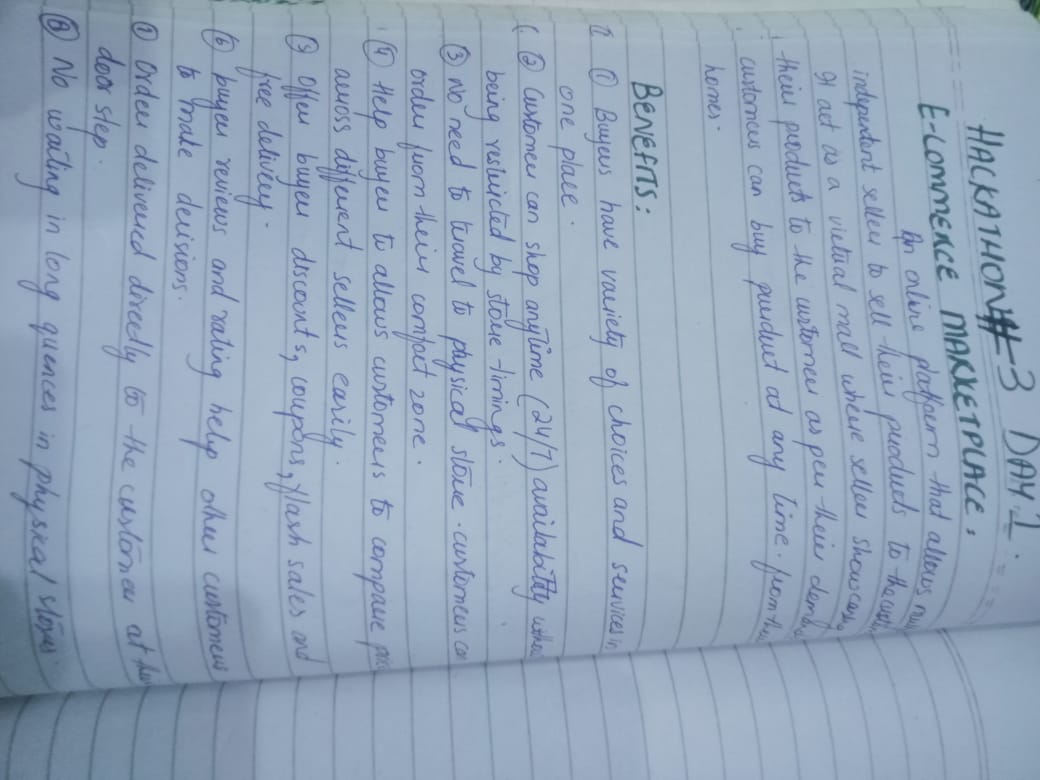 HACKATHON#-3 DAY-1.
E-COMMERCE MARKETPLACE:
An online platform that allows
independent seller to sell their products to the
It act as a virtual mall where seller showcase
their products to the customer as per their
customers can buy product at any time. from
homes.
BENEFITS:
① Buyers have variety of choices and services in
one place.
② Customer can shop anytime (24/7) availability
being restricted by store-timings.
③ No need to travel to physical store. customers
order from their comfort zone.
④ Help buyer to allows customers to compare
across different sellers easily.
⑤ Offer buyer discounts, coupons, flash sales and
free delivery.
⑥ buyer reviews and rating help other customers
to make decisions.
⑦ Order delivered directly to the customer at
door step.
⑧ No waiting in long quences in physical stores.